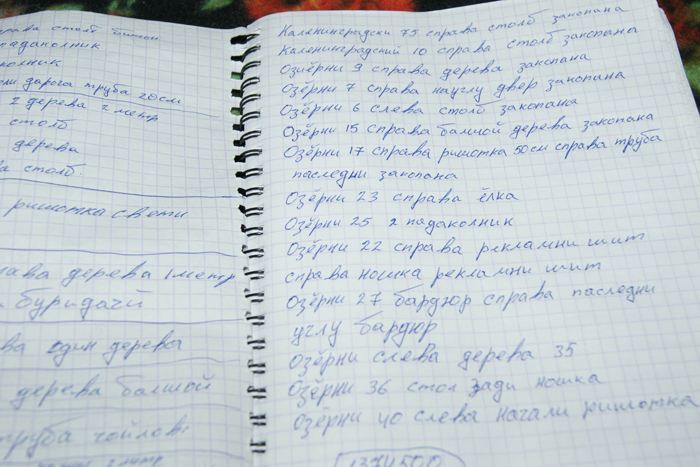 рава столб
падаколник
колник
дарога труба 20см
2 дерева 2 метр
столб
дерева
ва столб
ришотка свети
рава дерева 1 метр
буридачй
ва один дерева
дерева балшой
труба
2 метр
Каленинградски 75 справа столб закопана
Каленинградский 10 справа столб закопана
Озиёрни 9 справа дерева закопана
Озёрни 7 справа науглу двер закопана
Озёрни 6 слева столб закапана
Озёрни 15 справа балшой дерева закопана
Озёрни 17 справа ришотка 50см справа труба
последни закопана
Озёрни 23 справа ёлка
Озёрни 25 2 падаколник
Озёрни 22 справа рекламни шит
справа ношка рекламни шит
Озёрни 27 бардюр справа паследни
углу бардюр
Озёрни слева дерева 35
Озёрни 36 стол зади ношка
Озёрни 40 слева начали ришотка